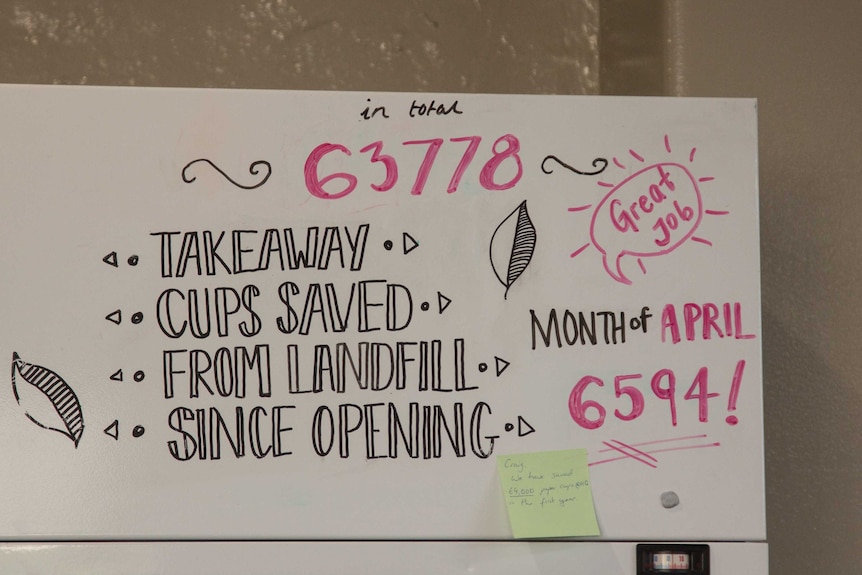 in total
63778
TAKEAWAY
CUPS SAVED
FROM LANDFILL
SINCE OPENING
Great
Job
MONTH of APRIL
6594!
Craig
We have saved
64,000 paper cups
in the first year